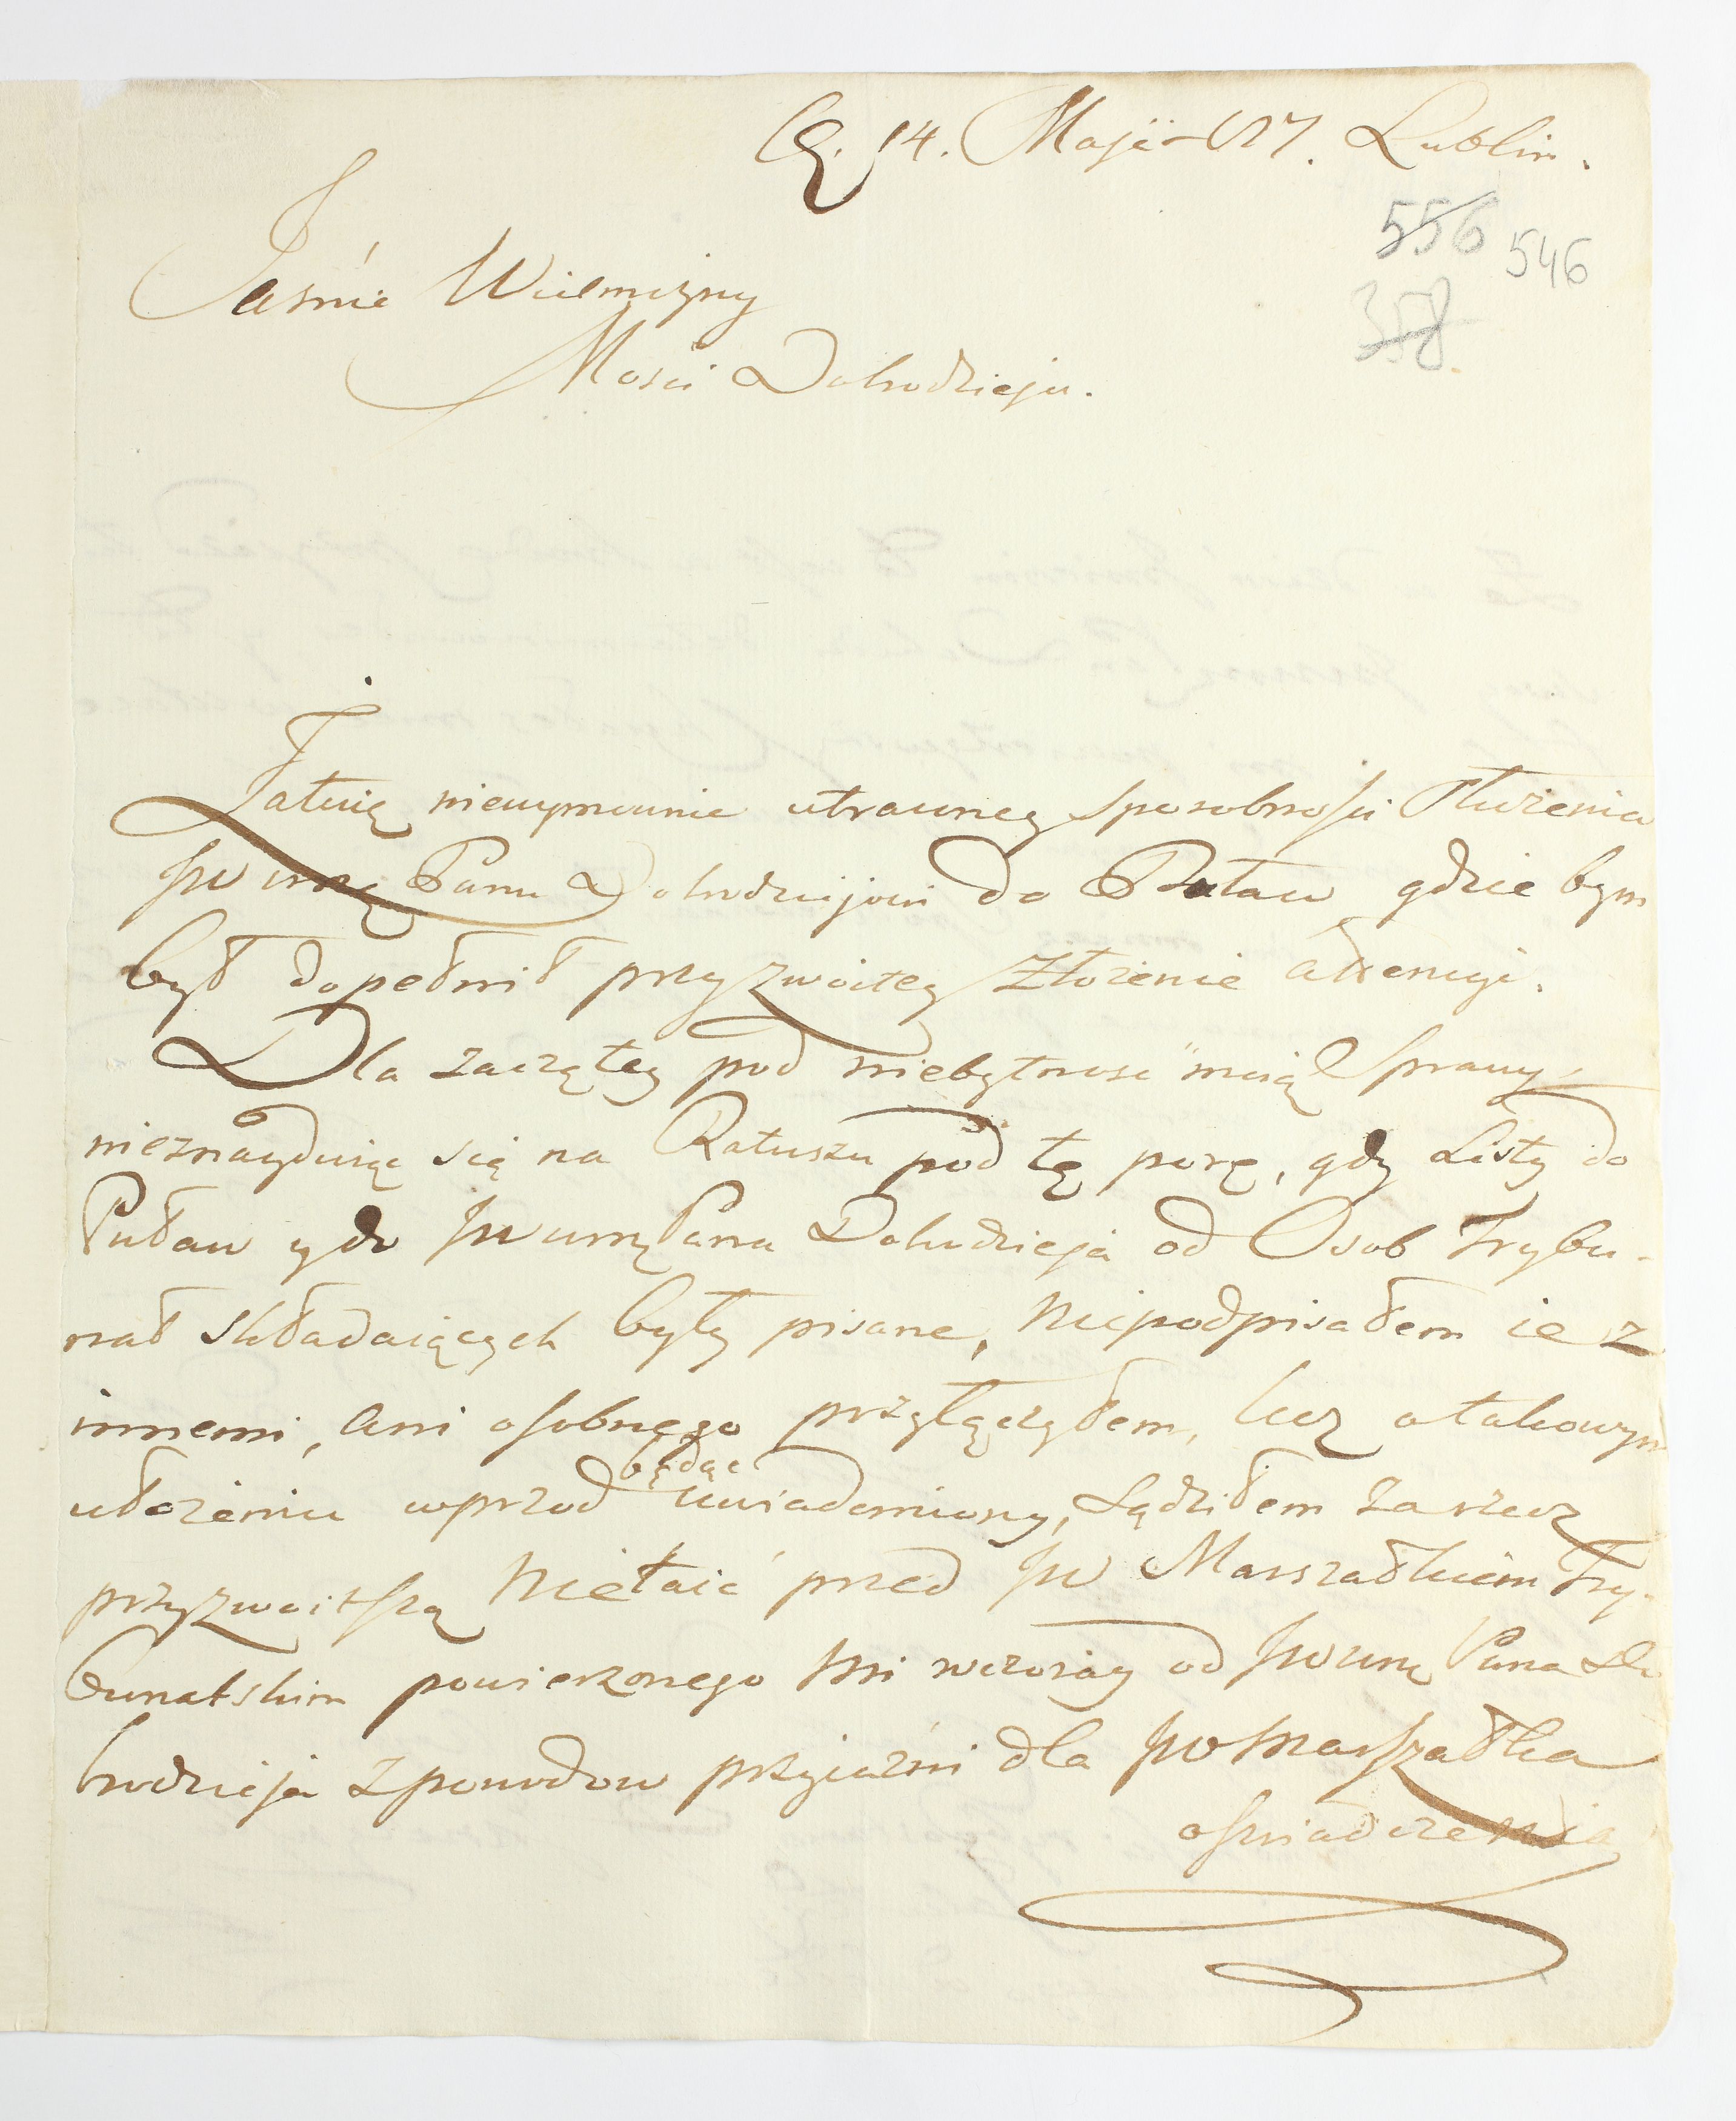 14. Maji 1787. Lublin.
556 546
358
Jaśnie Wielmożny
Mości Dobrodzieju.
Żałuię niewymownie utraconey sposobności służenia
JW WMę Panu Dobrodziejowi do Puław gdzie bym
był dopełnił przyzwoitey złożenie attencyi.
Dla zaczętey pod niebytność moią Sprawy
nieznayduiąc się na Ratuszu pod tę porę, gdy Listy do
Puław y do JW WMę Pana Dobrodzieja od Osob Trybu-
nał składaiących były pisane, Niepodpisałem ie z
innemi, ani osobnego przyłączyłem, lecz o takowym
ułożeniu wprzod będąc uwiadomiony, Sądziłem za rzecz
przyzwoitszą Nietaić przed JW Marszałkiem Try-
bunalskim powierzonego mi wczoray od JW WMę Pana Do
brodzieja z powodow przyiaźni dla JW Marszałka
oświadczenia